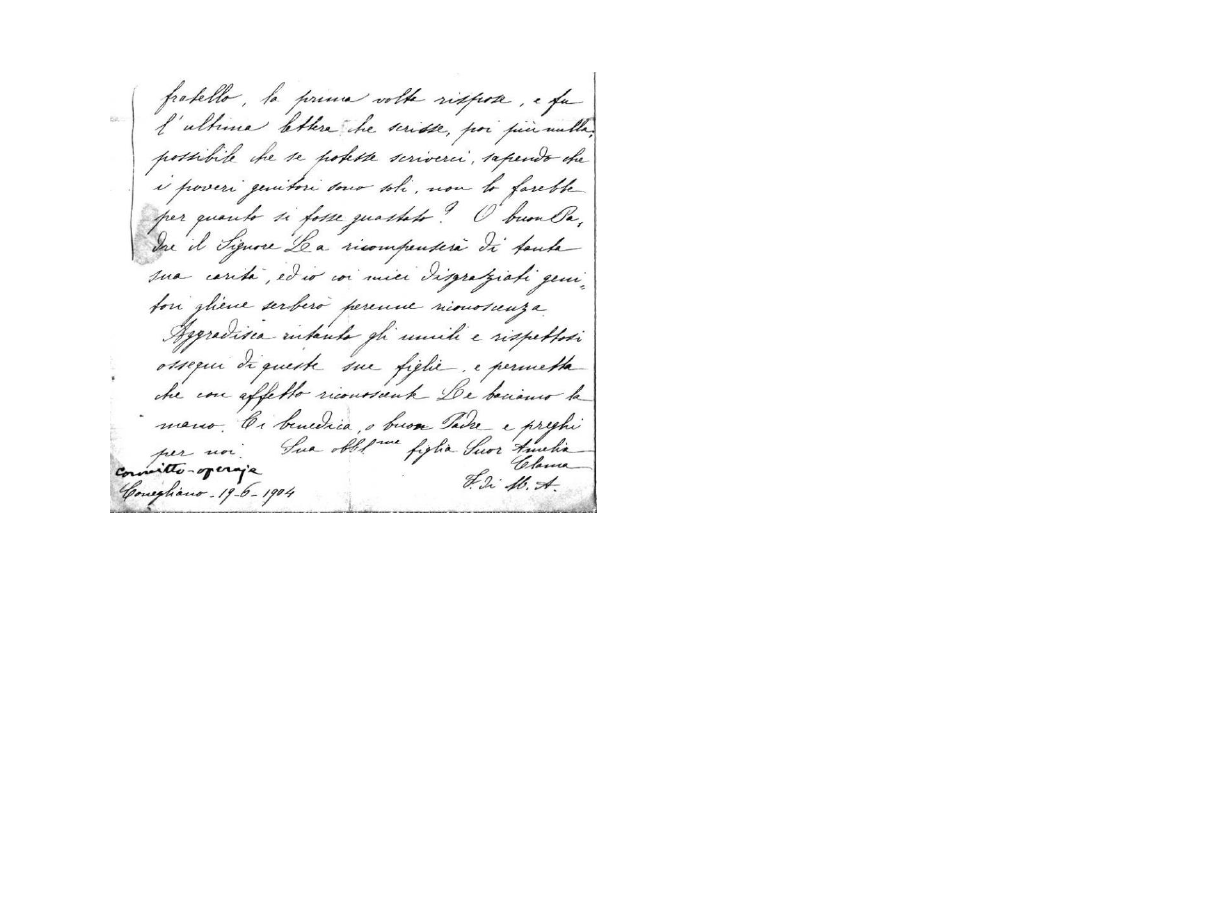 fratello, la prima volta rispose, e fu
l'ultima lettera che scrisse, poi più nulla,
possibile che se potesse scriverci, sapendo che
i poveri genitori sono soli, non lo farebbe
per quanto si fosse guastato? O buon Pa,
dre il Signore La ricompenserà di tanta
sua carità, ed io coi miei disgraziati geni,
tori gliene serberò perenne riconoscenza.
Aggradisca intanto gli umili e rispettosi
ossequi di queste sue figlie, e permetta
che con affetto riconoscente Le baciamo la
mano. Ci benedica, o buon Padre e preghi
per noi. Sua obbl.me figlia Suor Amelia
Clama
convitto-operaje
F. di M. A.
Conegliano - 19-6-1904